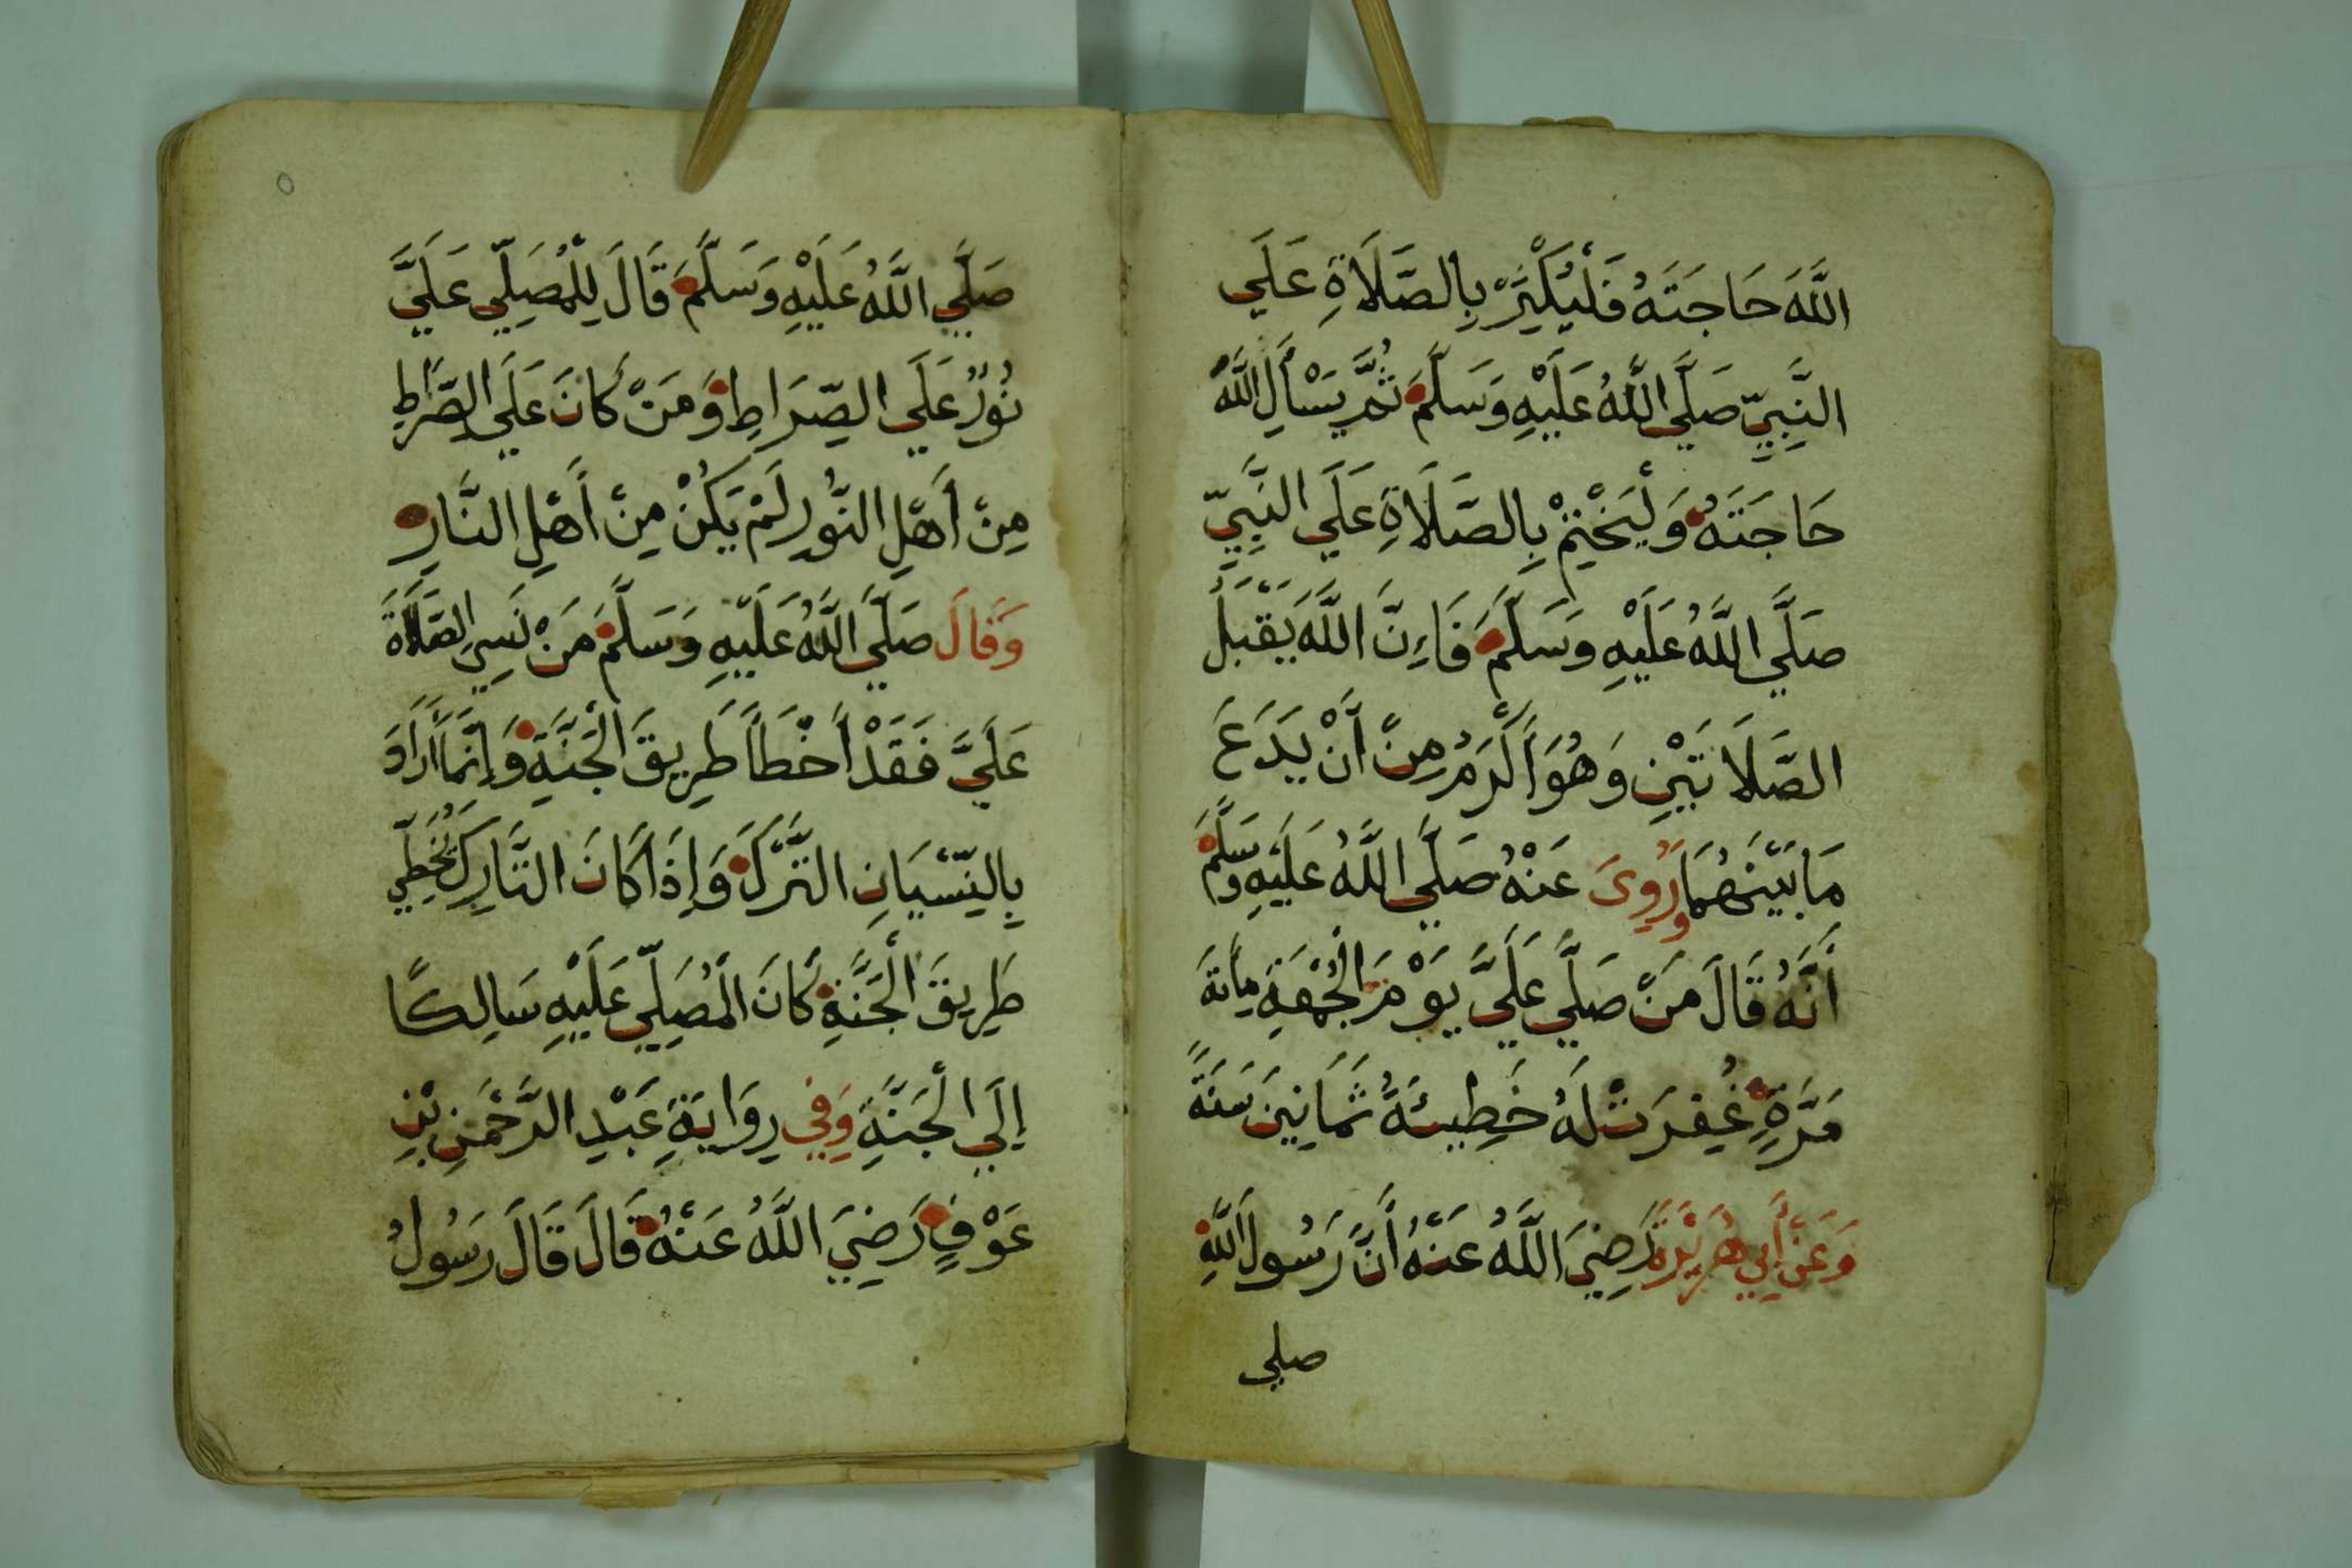 اللَّهَ حَاجَتَهُ فَلْيُكْثِرْ بِالصَّلَاةِ عَلَي
النَّبِيِّ صَلَّي اللَّهُ عَلَيْهِ وَسَلَّمَ ثُمَّ يَسْأَلِ اللَّهَ
حَاجَتَهُ وَلْيَخْتِمْ بِالصَّلَاةِ عَلَي النَّبِيِّ
صَلَّي اللَّهُ عَلَيْهِ وَسَلَّمَ فَاِنَّ اللَّهَ يَقْبَلُ
الصَّلَاتَيْنِ وَهُوَ أَكْرَمُ مِنْ أَنْ يَدَعَ
مَا بَيْنَهُمَا وَرُوِيَ عَنْهُ صَلَّي اللَّهُ عَلَيْهِ وَسَلَّمَ
أَنَّهُ قَالَ مَنْ صَلَّي عَلَيَّ يَوْمَ الْجُمْعَةِ مِائَةَ
مَرَّةٍ غُفِرَتْ لَهُ خَطِيئَةُ ثَمَانِينَ سَنَةً
وَعَنْ أَبِي هُرَيْرَةَ رَضِيَ اللَّهُ عَنْهُ أَنَّ رَسُولَ اللَّهِ
صلي
٥
صَلَّي اللَّهُ عَلَيْهِ وَسَلَّمَ قَالَ لِلْمُصَلِّي عَلَيَّ
نُورٌ عَلَي الصِّرَاطِ وَمَنْ كَانَ عَلَي الصِّرَاطِ
مِنْ أَهْلِ النُّورِ لَمْ يَكُنْ مِنْ أَهْلِ النَّارِ
وَقَالَ صَلَّي اللَّهُ عَلَيْهِ وَسَلَّمَ مَنْ نَسِيَ الصَّلَاةَ
عَلَيَّ فَقَدْ أَخْطَأَ طَرِيقَ الْجَنَّةِ وَإِنَّمَا أَرَادَ
بِالنِّسْيَانِ التَّرْكَ وَإِذَا كَانَ التَّارِكُ يُخْطِي
طَرِيقَ الْجَنَّةِ كَانَ الْمُصَلِّي عَلَيْهِ سَالِكًا
إِلَي الْجَنَّةِ وَفِي رِوَايَةِ عَبْدِ الرَّحْمَنِ بْنِ
عَوْفٍ رَضِيَ اللَّهُ عَنْهُ قَالَ قَالَ رَسُولُ